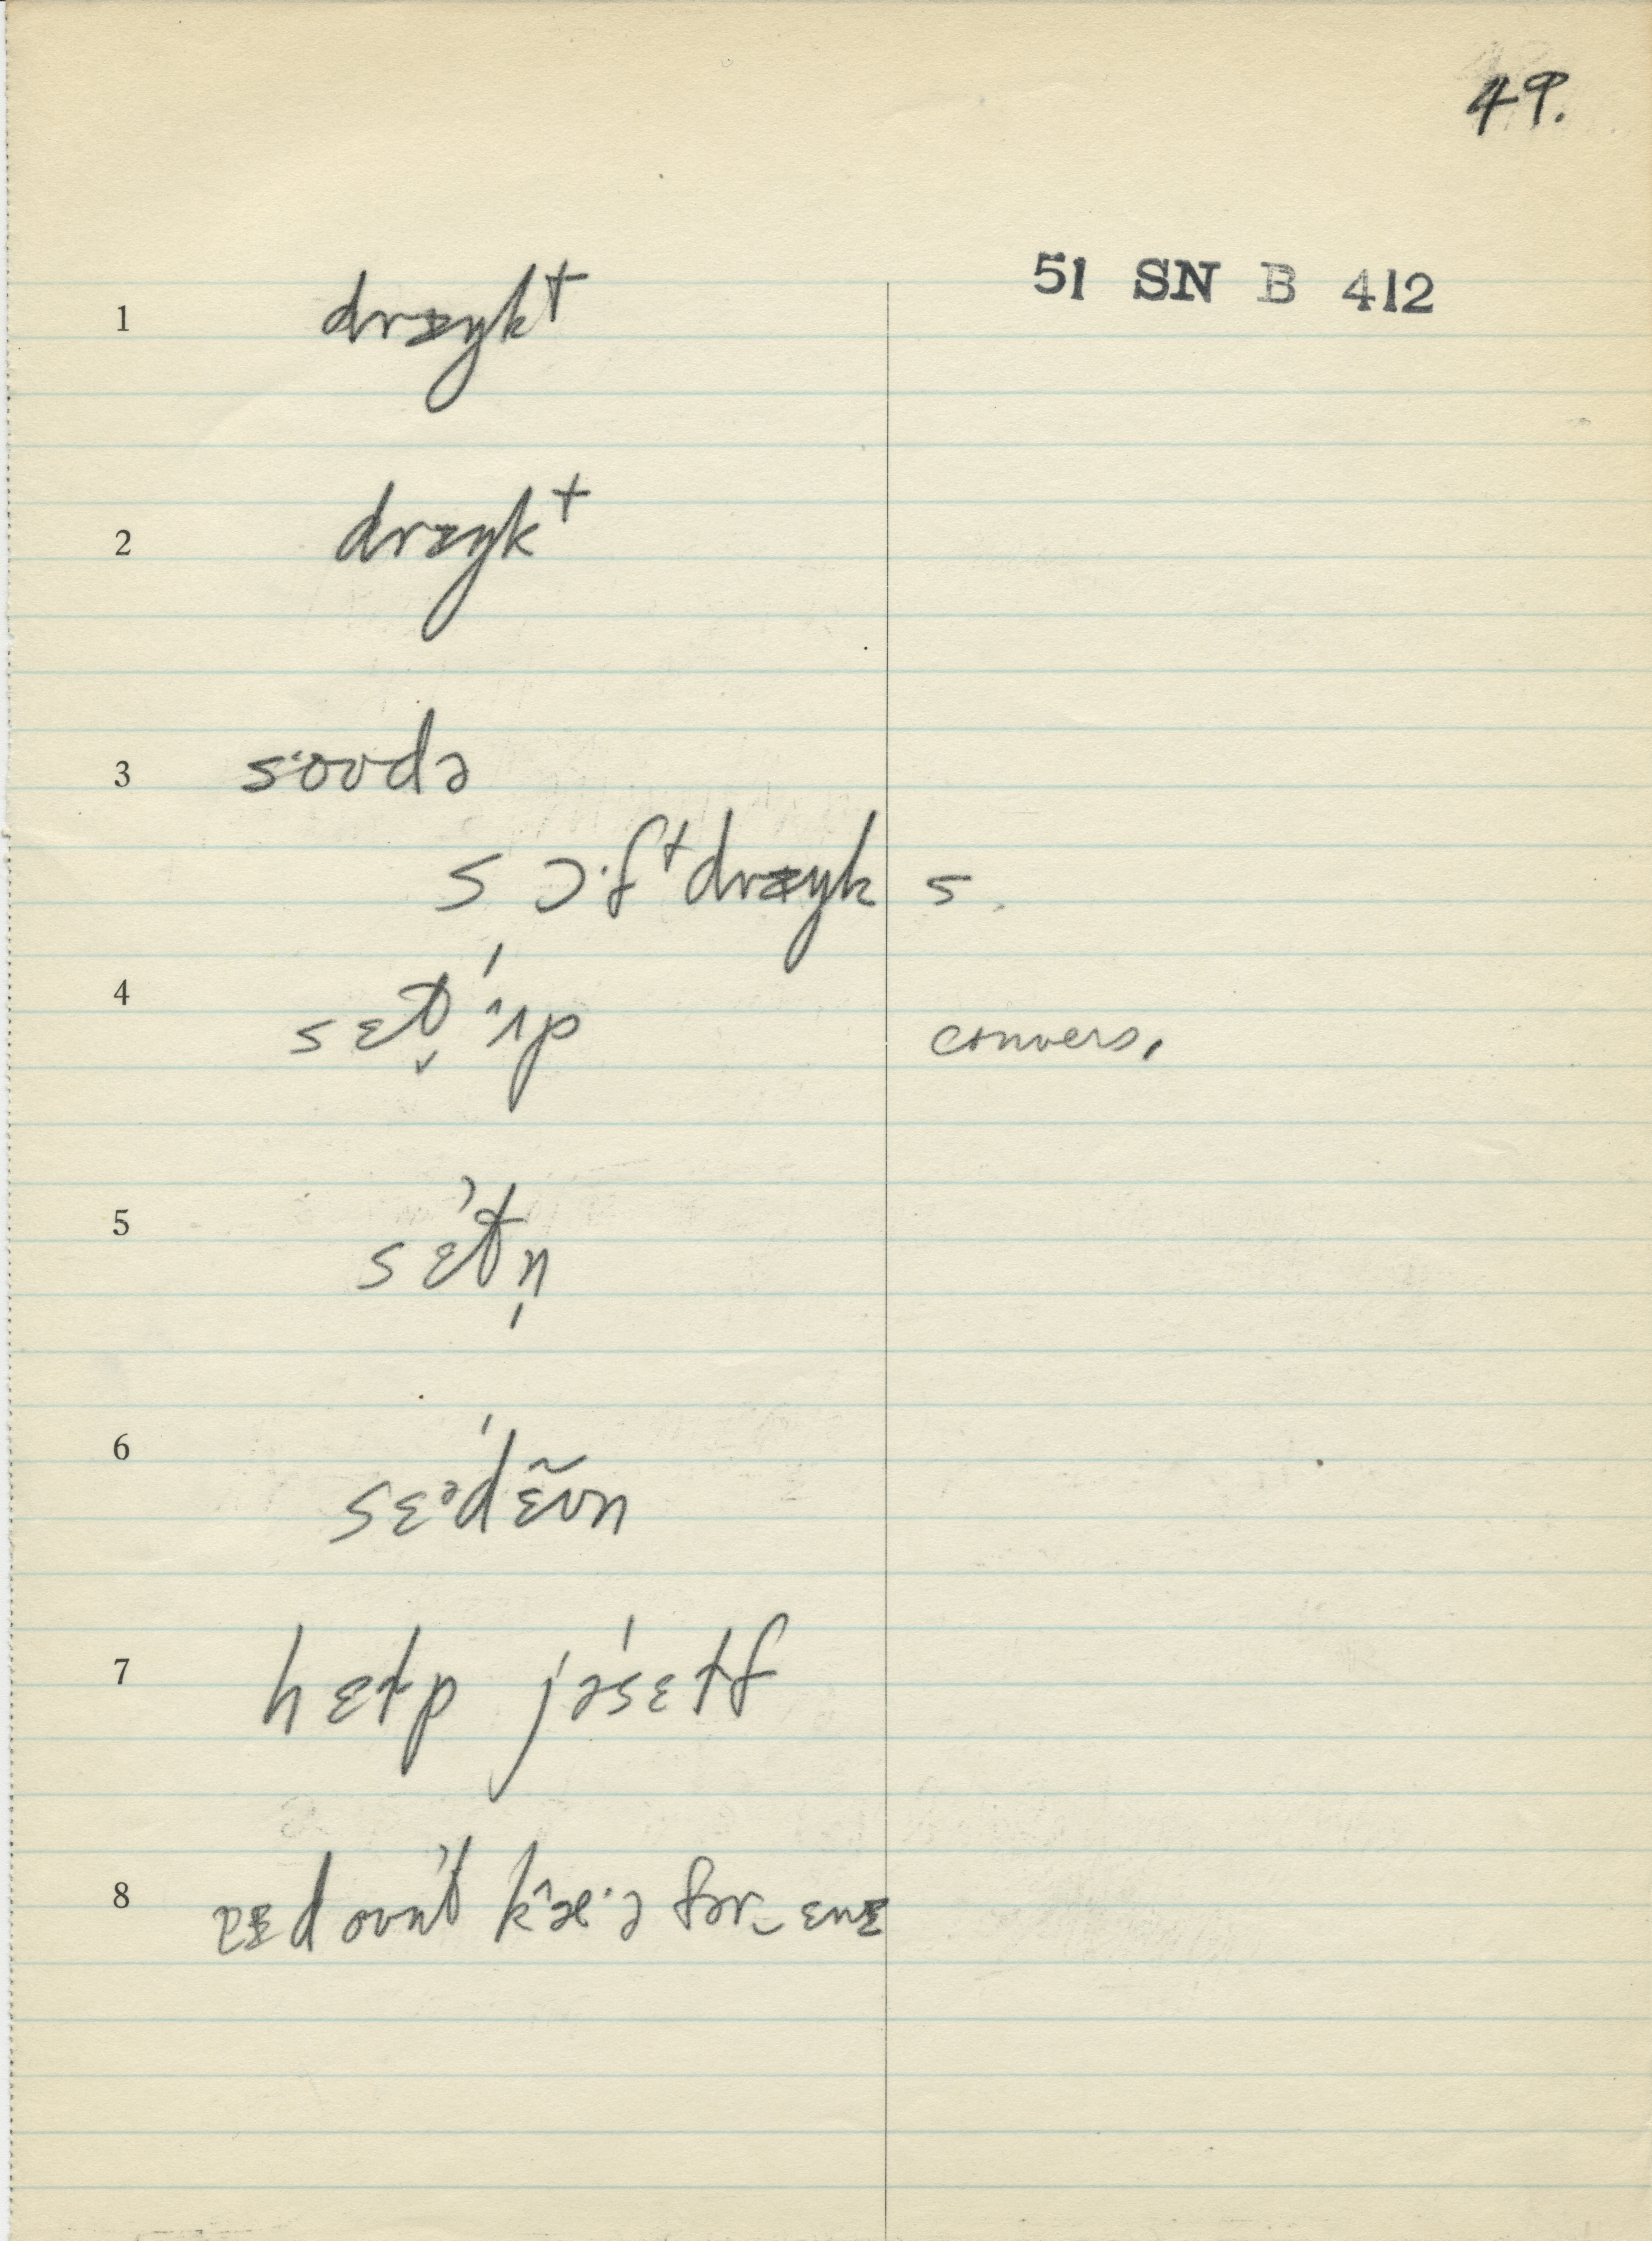 49.
51 SN B 412
1 drɪŋkᵗ
2 drɪŋkᵗ
3 soʊdə
sɔ·fᵗdrɪŋks
4 sɛt̬ˈʌp convers.
5 sɛˈtn̩
6 sɛᵊˈdɛ̃ʊn
7 hɛɫp jəˈsɛɫf
8 doʊnˈt kʰæ·ə fər‿ɛnɪ